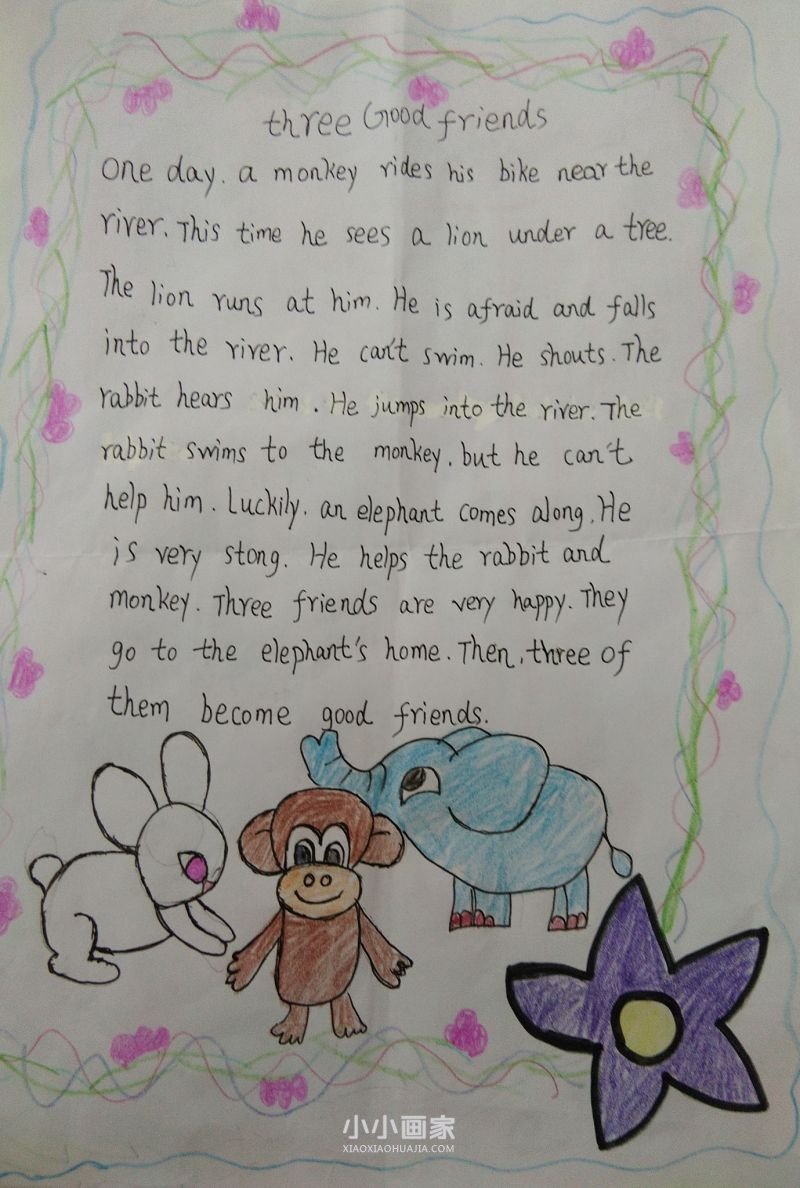 three Good friends
One day. a monkey rides his bike near the
river. This time he sees a lion under a tree.
The lion runs at him. He is afraid and falls
into the river. He can't swim. He shouts. The
rabbit hears him. He jumps into the river. The
rabbit swims to the monkey. but he can't
help him. Luckily. an elephant comes along. He
is very stong. He helps the rabbit and
monkey. Three friends are very happy. They
go to the elephant's home. Then, three of
them become good friends.
小小画家
XIAOXIAOHUAJIA.COM